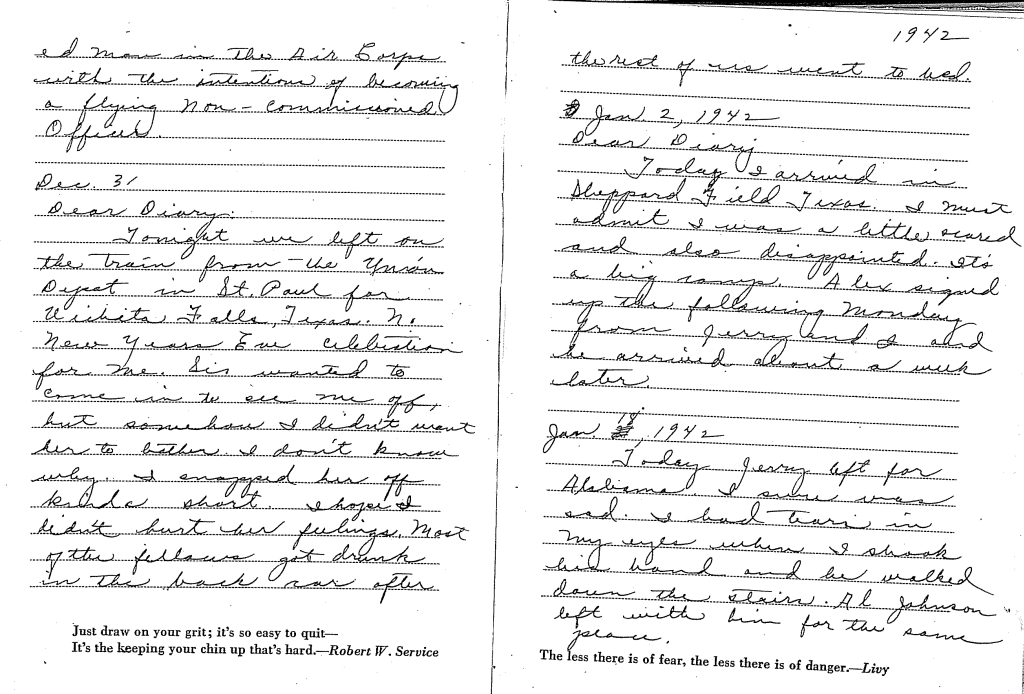 ed man in the Air Corps
with the intentions of becoming
a flying non-commissioned
Officer.
Dec. 31
Dear Diary:
Tonight we left on
the train from the Union
Depot in St. Paul for
Wichita Falls, Texas. N.
New Years Eve celebration
for me. Sis wanted to
come in to see me off,
but somehow I didn't want
her to bother. I don't know
why. I snapped her off
kinda short. I hope I
didn't hurt her feelings. Most
of the fellows got drunk
in the back car after
Just draw on your grit; it's so easy to quit—
It's the keeping your chin up that's hard.—Robert W. Service
1942
the rest of us went to bed.
Jan 2, 1942
Dear Diary
Today I arrived in
Sheppard Field Texas. I must
admit I was a little scared
and also disappointed. It's
a big camp. Alex signed
up the following Monday
from Jerry and I and
he arrived about a week
later.
Jan. 18, 1942
Today Jerry left for
Alabama. I sure was
sad. I had tears in
my eyes when I shook
his hand and he walked
down the stairs. Al Johnson
left with him for the same
place.
The less there is of fear, the less there is of danger.—Livy